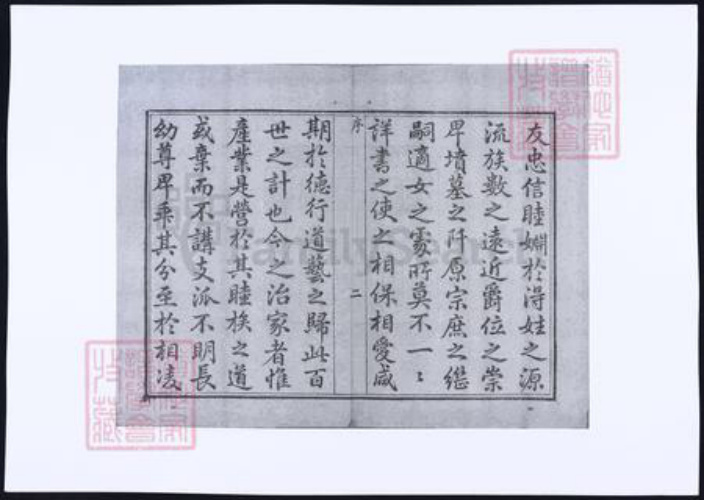 友忠信睦婣於淂姓之源
流族數之遠近爵位之崇
早墳墓之阡原宗庶之継
嗣適女之處所莫不一〻
詳書之使之相保相愛咸
序
二
期於徳行道藝之歸此百
世之計也今之治家者惟
產業是營於其睦族之道
或棄而不講支派不明長
幼尊卑乖其分至於相凌
FamilySearch